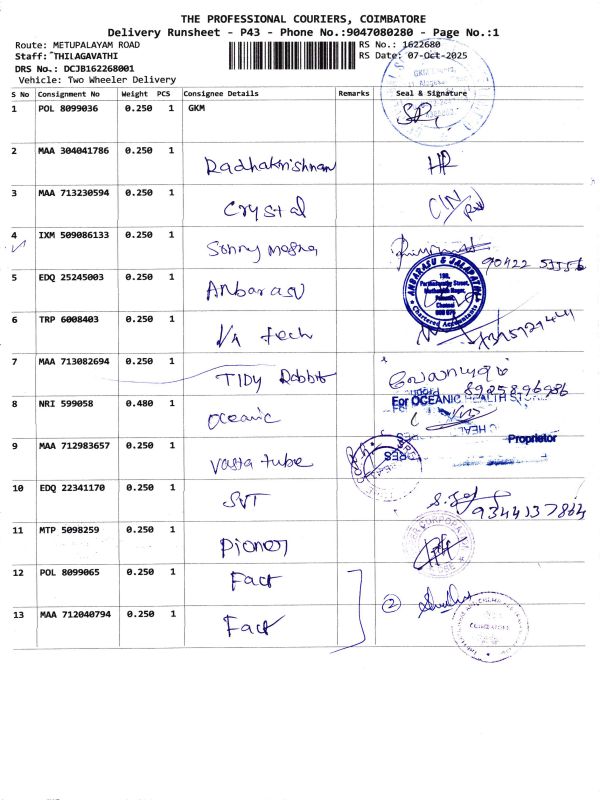 THE PROFESSIONAL COURIERS, COIMBATORE
Delivery Runsheet - P43 - Phone No.:9047080280 - Page No.:1
Route: METUPALAYAM ROAD
RS No.: 1622680
Staff: THILAGAVATHI
RS Date: 07-Oct-2025
DRS No.: DCJB162268001
Vehicle: Two Wheeler Delivery
S No Consignment No Weight PCS Consignee Details Remarks Seal & Signature
1 POL 8099036 0.250 1 GKM
2 MAA 304041786 0.250 1 Radhakrishnan HR
3 MAA 713230594 0.250 1 Crystal
4 IXM 509086133 0.250 1 90422 55556
5 EDQ 25245003 0.250 1 Anbarasu
ANBARASU & JALAPATHI
Chartered Accountants
6 TRP 6008403 0.250 1 V/A tech
7 MAA 713082694 0.250 1 TIDY Rabbit
8925896986
8 NRI 599058 0.480 1 oceanic
For OCEANIC HEALTH
Proprietor
9 MAA 712983657 0.250 1 vasta tube
10 EDQ 22341170 0.250 1 SVT
9344137864
11 MTP 5098259 0.250 1 Pioneer
12 POL 8099065 0.250 1 Fact
2
13 MAA 712040794 0.250 1 Fact